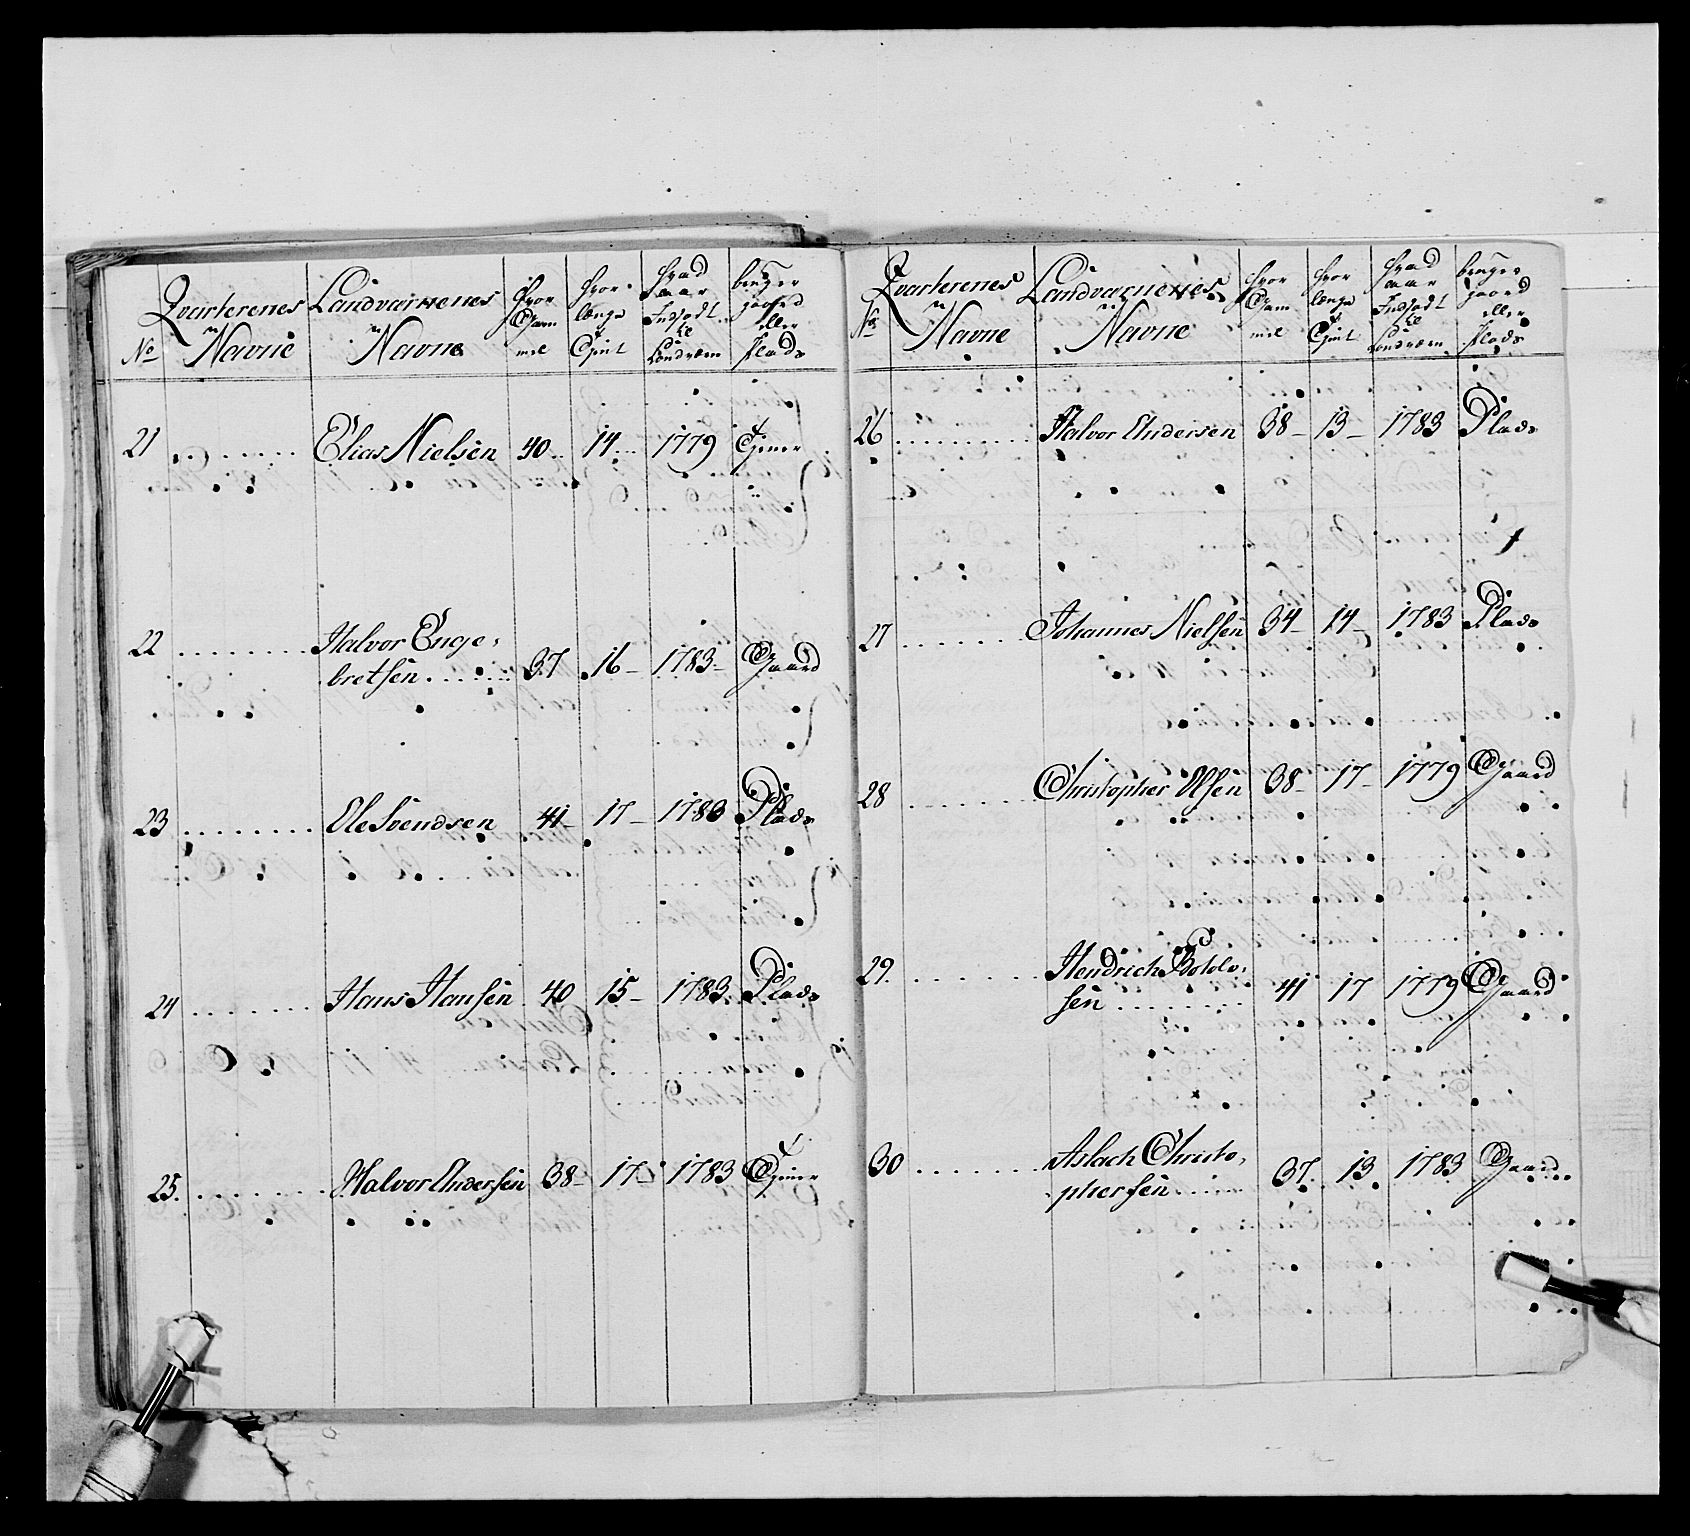 No Qvarterenes Navne Landværnenes Navne hvor Gam mel hvor længe tjent hvad aar Indsadt til Landværn bruger gaard eller Plads
21 ........ Elias Nielsen 40.. 14... 1779 Tjener
22 ........ Halvor Enge,
bretsen ...... 37 16 – 1783 – Gaard
23 ........ Ole Svendsen 41 – 17 – 1783 Plads
24 ....... Hans Hansen 40 15 – 1783 Plads
25. ....... Halvor Andersen 38 – 17 – 1783 Tjener
No Qvarterenes Navne Landværnenes Navne hvor Gam mel hvor længe tjent hvad aar Indsadt til Landværn bruger gaard eller Plads
26 ........ Halvor Andersen 38 – 13 – 1783 Plads
27 ....... Johannes Nielsen 34 – 14 – 1783 Plads
28 ....... Christopher Olsen 38 – 17 – 1779 Gaard
29. ....... Hendrich Botolv,
sen ....... 41 17 1779 Gaard
30 ....... Aslach Christo,
phersen ..... 37. 13. 1783 Gaard..